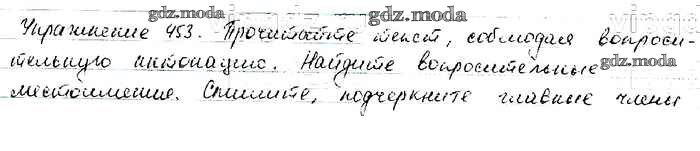 gdz.moda gdz.moda gdz.moda
Упражнение 453. Прочитайте текст, соблюдая вопроси-
тельную интонацию. Найдите вопросительные
gdz.moda
местоимения. Спишите, подчеркните главные члены
gdz.moda gdz.moda